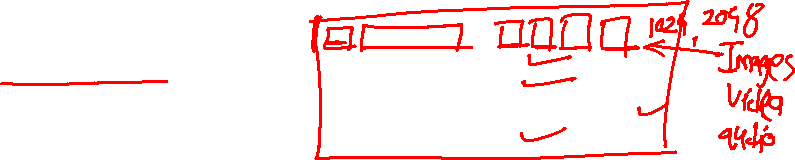 1024, 2048
Images
Video
audio